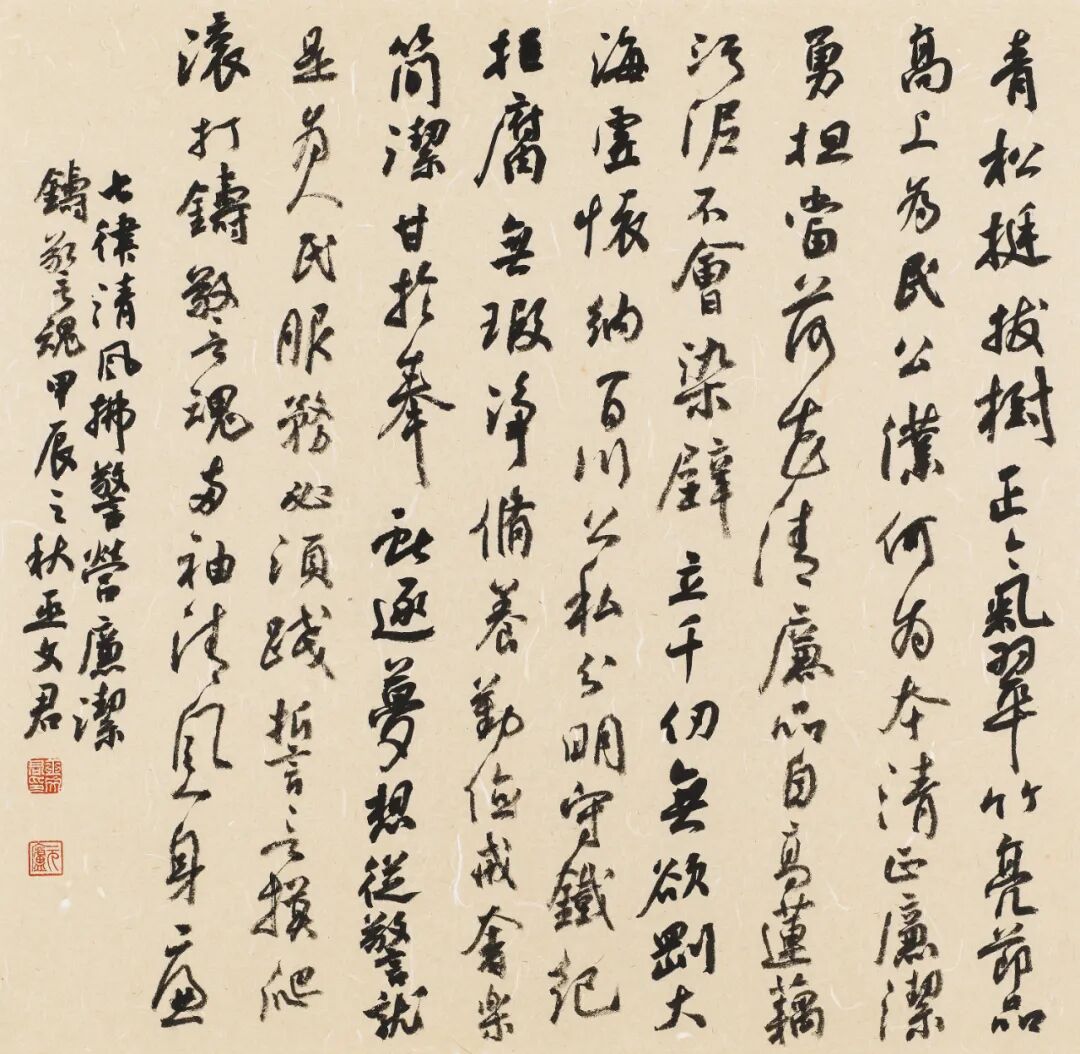 青松挺拔樹正氣翠竹亮節品
高上為民公僕何為本清正廉潔
勇担當荷花清廉品自高蓮藕
污泥不會染壁立千仞無欲剛大
海虛懷納百川公私分明守鐵紀
拒腐無瑕淨脩養勤儉戒奢樂
簡潔甘於奉獻逐夢想從警就
是為人民服務必須踐誓言摸爬
滾打鑄警魂兩袖清風一身廉
七律清風拂警營廉潔
鑄警魂甲辰之秋巫文君